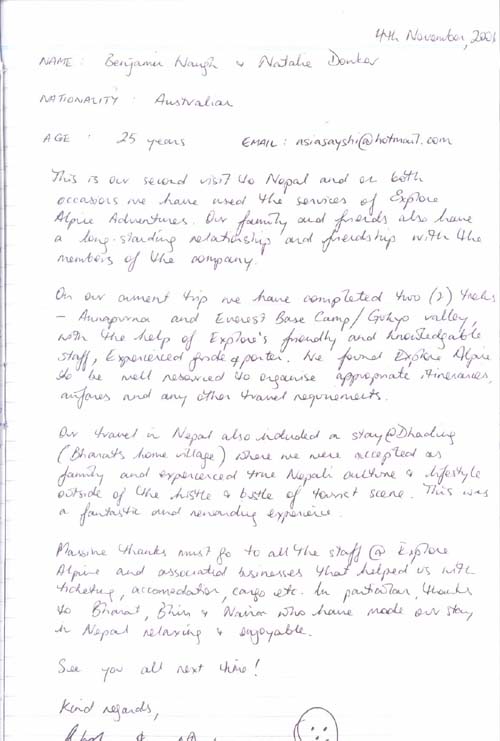 4th November, 2001
NAME : Benjamin Waugh & Natalie Donker
NATIONALITY : Australian
AGE : 25 years EMAIL : asiasayshi@hotmail.com
This is our second visit to Nepal and on both
occasions we have used the services of Explore
Alpine Adventures. Our family and friends also have
a long-standing relationship and friendship with the
members of the company.
On our current trip we have completed two (2) treks
- Annapurna and Everest Base Camp/Gokyo valley,
with the help of Explore's friendly and knowledgable
staff, Experienced guide & porter. We found Explore Alpine
to be well resourced to organise appropriate itineraries,
airfares and any other travel requirements.
Our travel in Nepal also included a stay @ Dhading
(Bharat's home village) where we were accepted as
family and experienced true Nepali culture & lifestyle
outside of the hustle & bustle of tourist scene. This was
a fantastic and rewarding experience.
Massive thanks must go to all the staff @ Explore
Alpine and associated businesses that helped us with
ticketing, accomodation, cargo etc. In particular, thanks
to Bharat, Bhim & Naina who have made our stay
in Nepal relaxing & enjoyable.
See you all next time!
Kind regards,